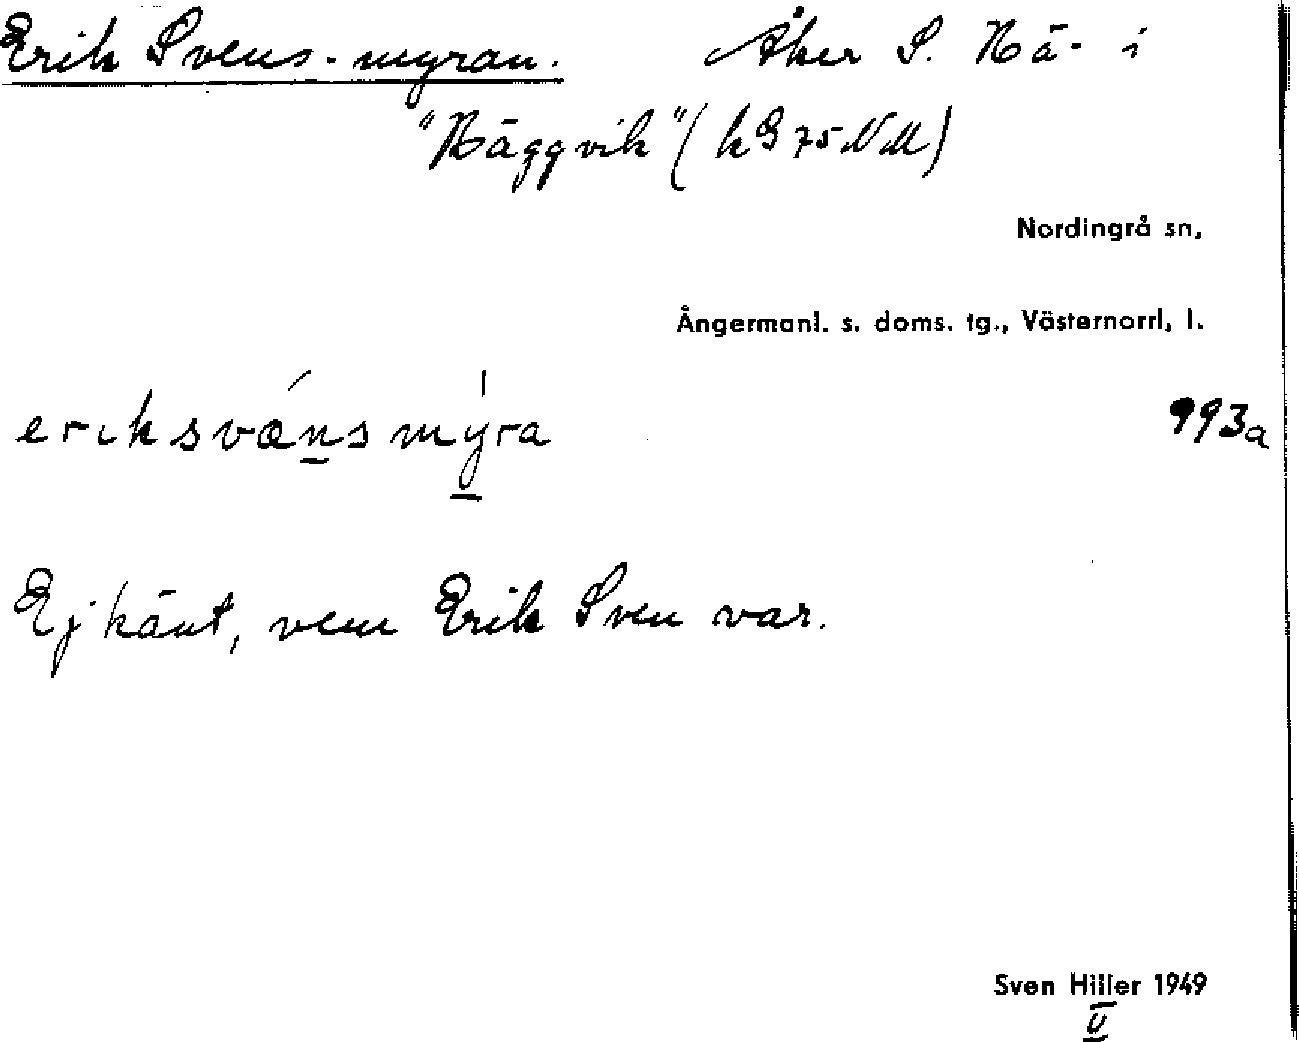 Erik Svens-myran. Åker S. Hä- i
"Häggvik" (k 9 75 N M)
Nordingrå sn,
Ångermanl. s. doms. tg., Västernorrl, l.
eriksvǽnsmýra 993a
Ej känt, vem Erik Sven var.
Sven Hiller 1949
U